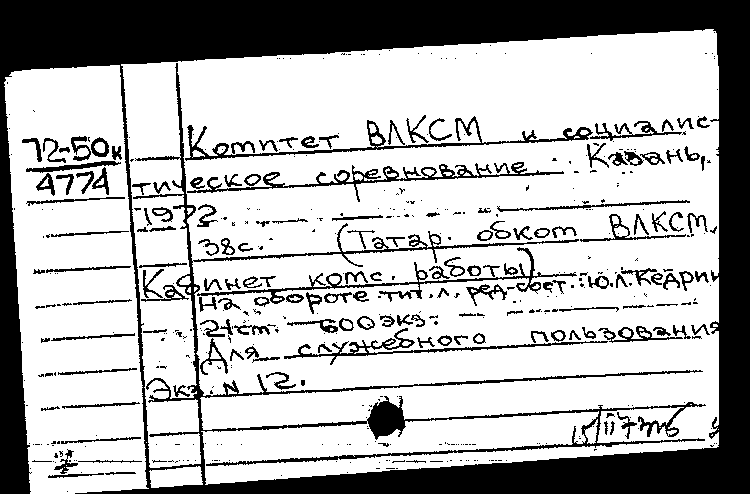 72-50к
4774
Комитет ВЛКСМ и социалис-
тическое соревнование. Казань,
1972.
38с. (Татар. обком ВЛКСМ.
Кабинет комс. работы).
На обороте тит. л. ред.-сост.: Ю.Л. Кедрин
21 см. 600 экз.
Для служебного пользования
Экз. N 12.